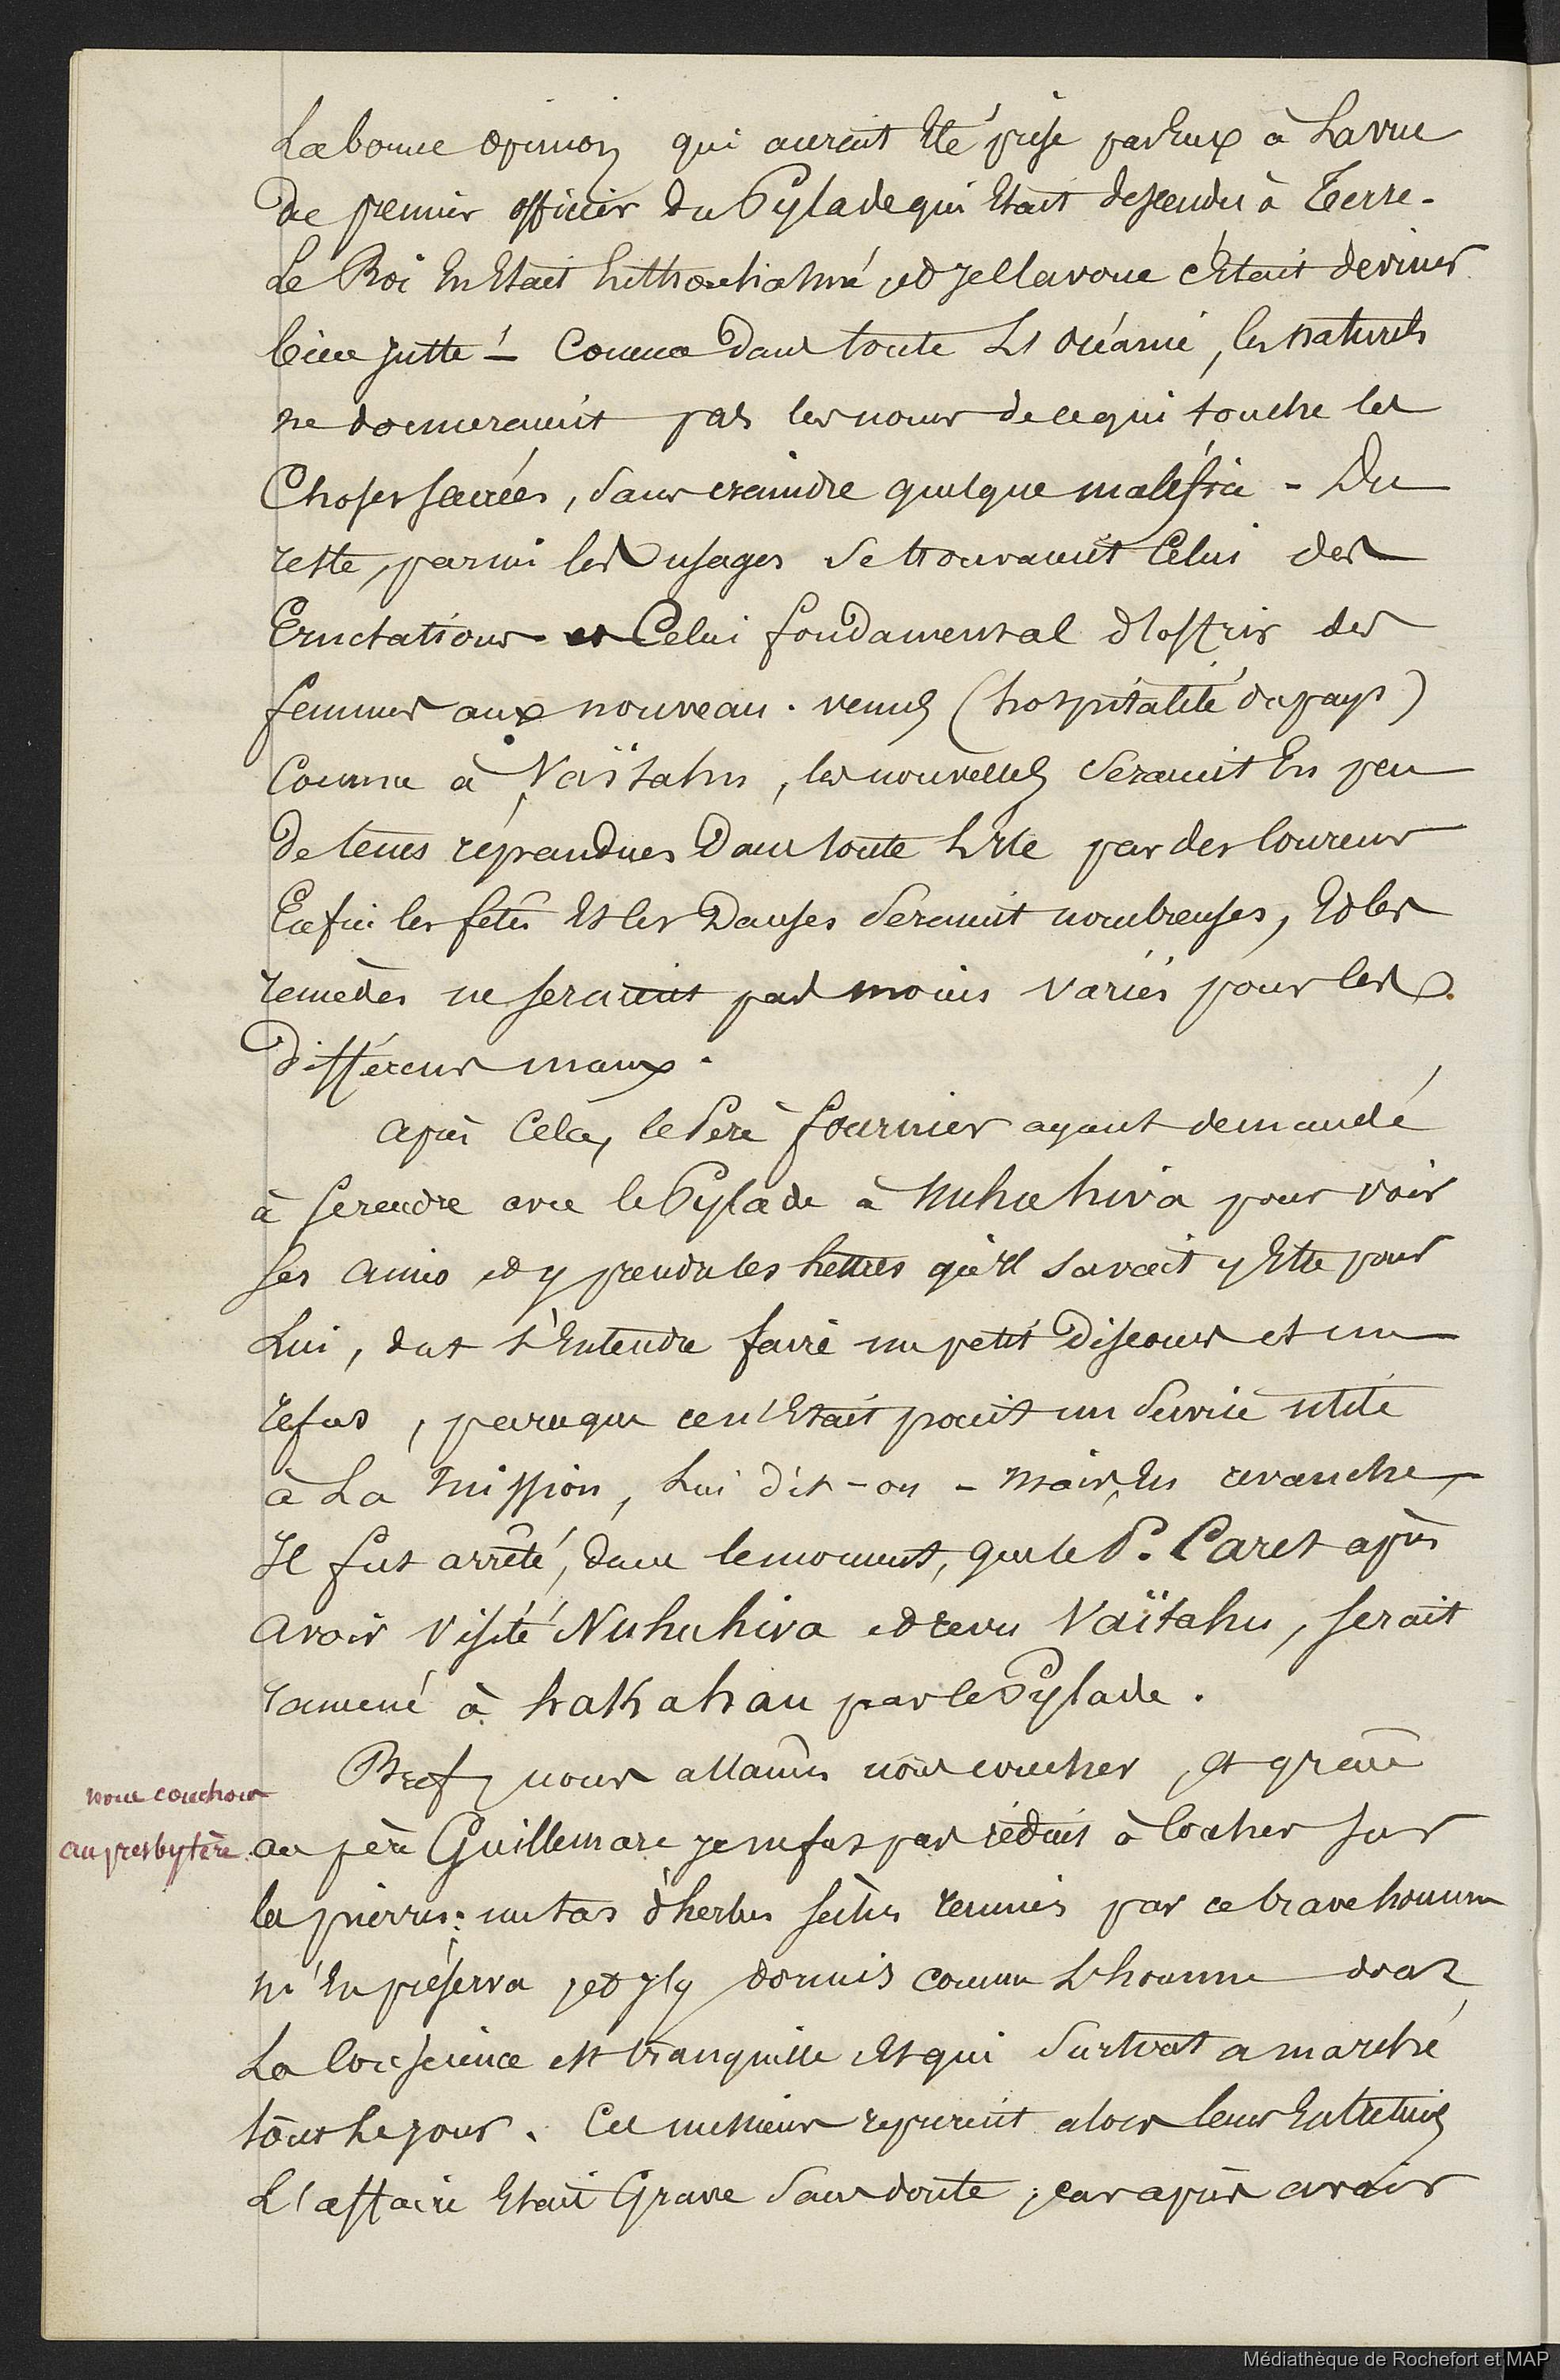 La bonne opinion qui aurait été prise par Eux à La vue
de premier officier du Pylade qui Etait descendu à Terre -
Le Roi En Etait Enthousiasmé, et Je L'avoue c'Etait deviner
bien juste ! - Comme dans toute L'océanie, les naturels
ne donneraient pas les noms de ce qui touche les
Choses sacrées, sans craindre quelque maléfice - Du
reste, parmi les usages se trouvaient Celui des
Eructations et Celui fondamental d'offrir des
femmes aux nouveau-venus (hospitalité du pays)
Comme à Vaïtahu, les nouvelles seraient En peu
de tems répandues Dans toute L'Ile par des Coureurs
Enfin les fêtes Et les Danses seraient nombreuses, Et les
remèdes ne seraient pas moins variés pour les
différens maux.
Après Cela, le Père fournier ayant demandé
à se rendre avec le Pylade à Nuhuhiva pour voir
ses amis et y prendre les Lettres qu'Il savait y Etre pour
Lui, dut s'Entendre faire un petit Discours et un
refus, parceque ce n'Etait point un Service utile
à La Mission, Lui dit-on - Mais, En revanche,
Il fut arrêté, dans le moment, que le P. Caret après
avoir visité Nuhuhiva et revu Vaïtahu, serait
ramené à hakahau par le Pylade.
Bref, nous allâmes nous coucher, Et grâce
nous couchons
au presbytère
au père Guillemare je ne fus pas réduit à Coucher sur
les pierres : un tas d'herbes sèches réunies par ce brave homme
m'En préserva, et J'y dormis comme L'homme dont
La Conscience est tranquille Et qui surtout a marché
tout Le jour. Ces messieurs reprirent alors leurs Entretiens
L'affaire Etait Grave Sans doute, car après avoir
Médiathèque de Rochefort et MAP